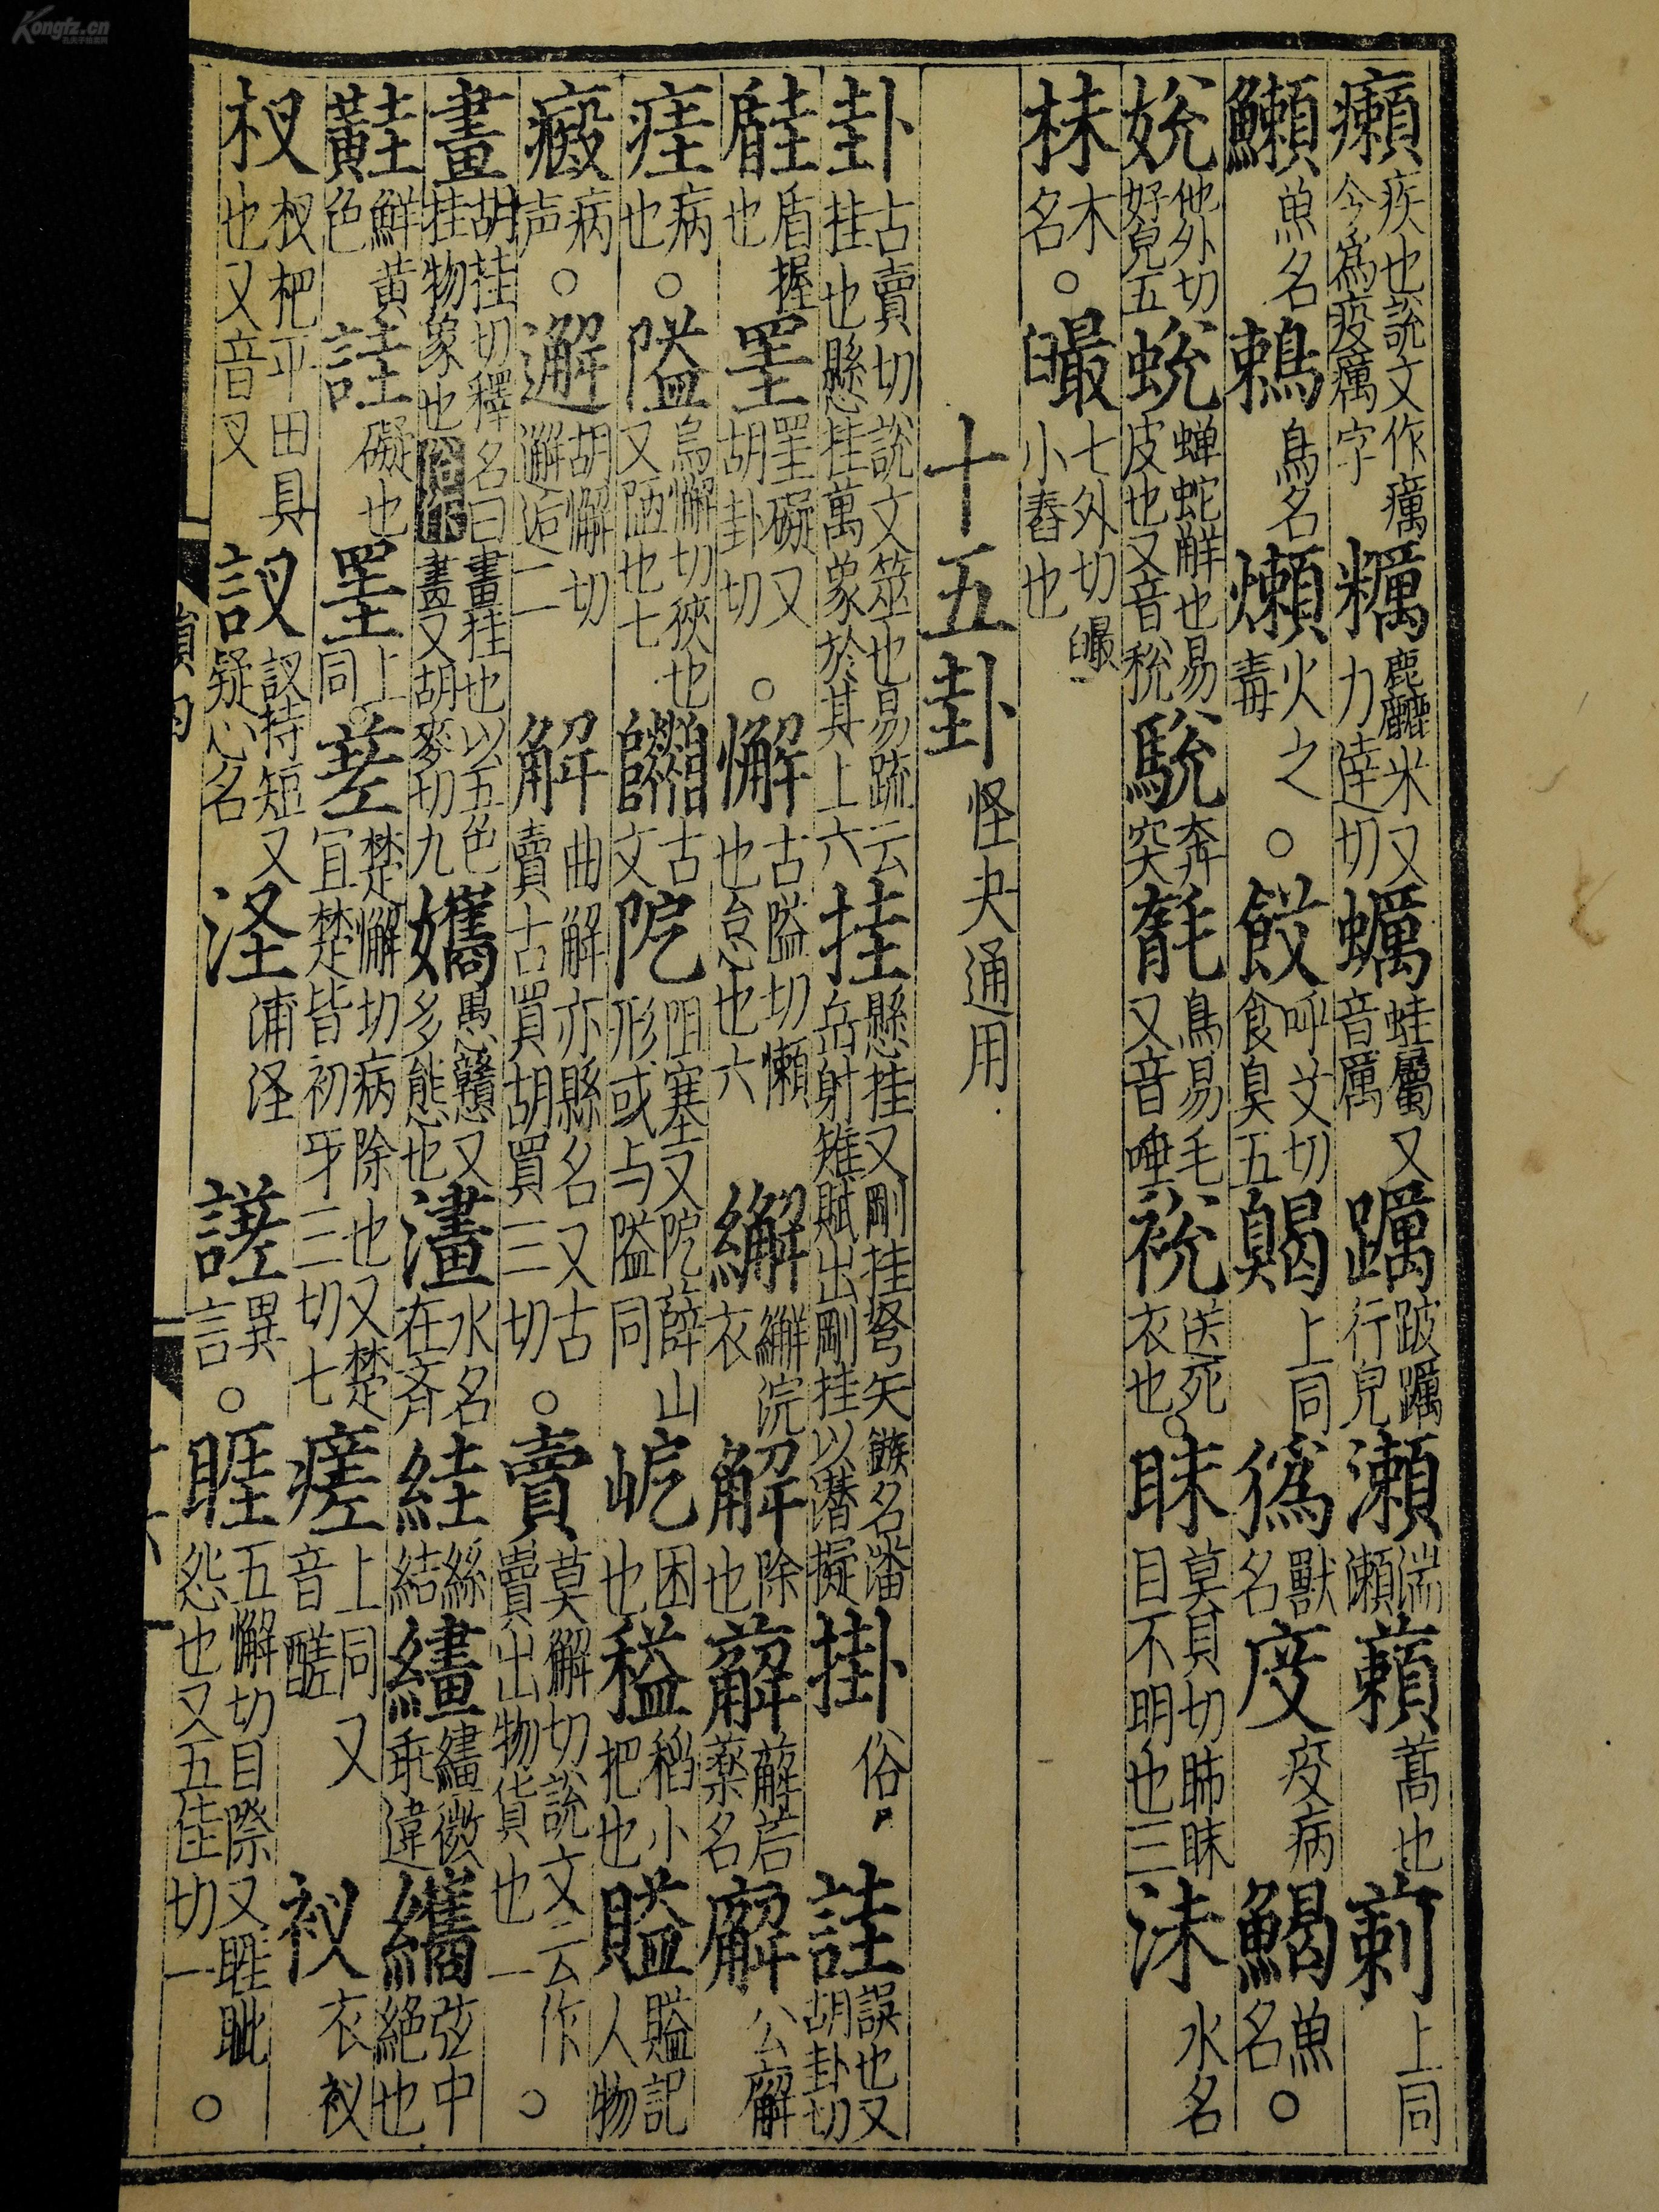 癩疾也說文作癘今爲疫癘字糲麤米又力達切蠣蛙屬又音厲䟏跛䟏行皃瀨湍瀨藾蒿也䓶上同
鱳魚名鵣鳥名爤火之毒○餀呼艾切食臭五餲上同㺔獸名疫病𩹄魚名○
娧他外切好皃五蛻蟬蛇解也易皮也又音稅駾奔突毻鳥易毛又音唾裞送死衣也○眛莫貝切眿眛目不明也三沬水名
𣏻木名○㝡七外切小舂也
十五卦怪夬通用
卦古賣切說文筮也易疏云卦挂也懸挂萬象於其上六挂懸挂又剛挂弩矢鏃名潘岳射雉賦出剛挂以潛擬掛俗詿誤也又胡卦切
𥎰盾握也罣罣礙又胡卦切○懈古隘切懶也怠也六繲繲浣衣解除也薢薢茩藥名廨公廨
㾏病也○隘烏懈切狹也又陋也七𨽵古文阸阻塞又阸薛山形或与隘同㞾困也䅬稻小把也賹賹記人物
㿇病声○邂胡懈切邂逅二解曲解亦縣名又古賣古買胡買三切○賣莫解切說文云作賣出物貨也一○
畫胡挂切釋名曰畫挂也以五色挂物象也俗作畫又胡麥切九㜾愚戇又多態也澅水名在齊絓絲結繣繣徽乖違纗弦中絕也
黊鮮黃色詿礙也罣上同○差楚懈切病除也又楚宜楚皆初牙三切七瘥上同又音醝衩衣衩
杈杈杷平田具也又音叉訍訍持短又疑心名㳗浦㳗䜁異言○睚五懈切目際又睚眦怨也又五佳切一○